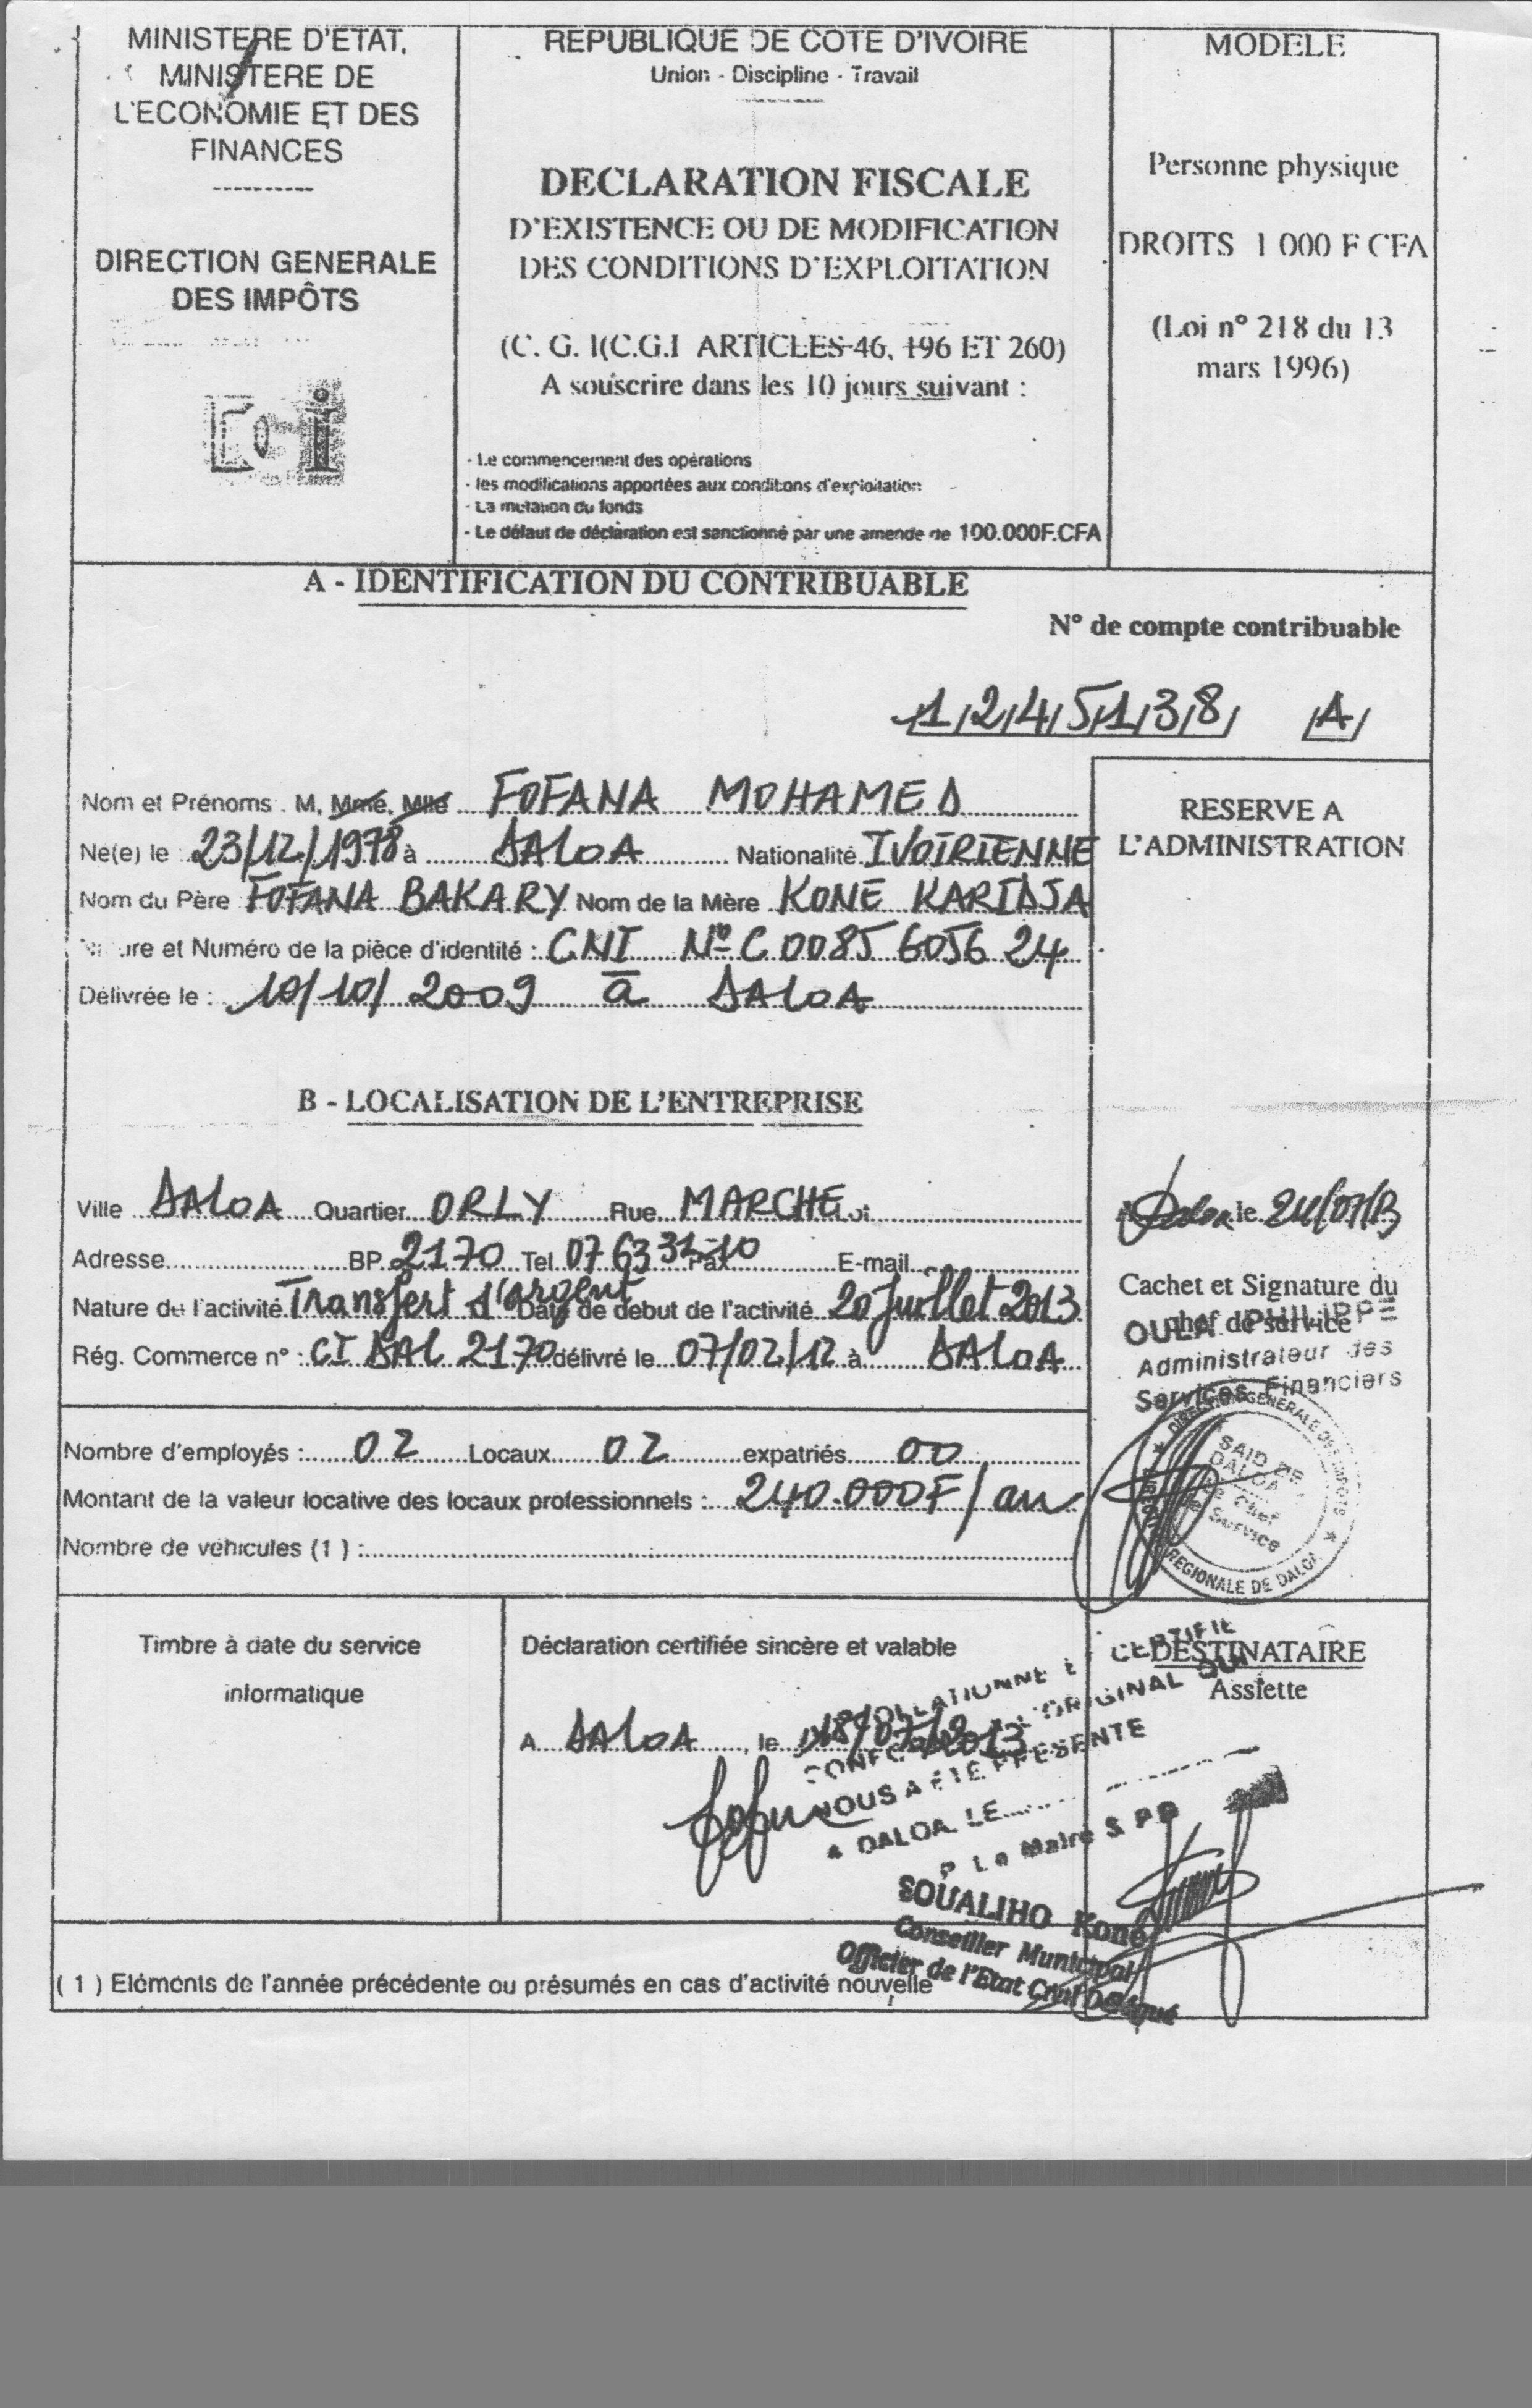 MINISTERE D'ETAT,
MINISTERE DE
L'ECONOMIE ET DES
FINANCES
----------
DIRECTION GENERALE
DES IMPÔTS
REPUBLIQUE DE COTE D'IVOIRE
Union - Discipline - Travail
DECLARATION FISCALE
D'EXISTENCE OU DE MODIFICATION
DES CONDITIONS D'EXPLOITATION
(C. G. I(C.G.I ARTICLES 46, 196 ET 260)
A souscrire dans les 10 jours suivant :
- Le commencement des opérations
- les modifications apportées aux conditions d'exploitation
- La mutation du fonds
- Le défaut de déclaration est sanctionné par une amende de 100.000F.CFA
MODELE
Personne physique
DROITS 1 000 F CFA
(Loi n° 218 du 13
mars 1996)
A - IDENTIFICATION DU CONTRIBUABLE
N° de compte contribuable
1 2 4 5 1 3 8 A
Nom et Prénoms . M, Mme, Mlle FOFANA MOHAMED
Né(e) le : 23/12/1978 à DALOA Nationalité IVOIRIENNE
Nom du Père FOFANA BAKARY Nom de la Mère KONE KARIDJA
et Numéro de la pièce d'identité : CNI N° C 0085 6056 24
Délivrée le : 10/10/2009 à DALOA
RESERVE A
L'ADMINISTRATION
B - LOCALISATION DE L'ENTREPRISE
Ville DALOA Quartier ORLY Rue MARCHE
Adresse BP 2170 Tel 07 63 31 10 Fax E-mail
Nature de l'activité Transfert d'argent Date de debut de l'activité 20 Juillet 2013
Rég. Commerce n° : CI DAL 2170 délivré le 07/02/12 à DALOA
Daloa le 24/07/13
Cachet et Signature du
chef de service
OULA PHILIPPE
Administrateur des
Services Financiers
DIRECTION GENERALE DES IMPOTS
REGIONALE DE DALOA
SAID DE
DALOA
Le Chef
de Service
Nombre d'employés : 02 Locaux 02 expatriés 00
Montant de la valeur locative des locaux professionnels : 240.000F/an
Nombre de véhicules (1) :
Timbre à date du service
informatique
Déclaration certifiée sincère et valable
A DALOA, le 18/07/2013
DESTINATAIRE
Assiette
COLLATIONNE ET CERTIFIE
CONFORME A L'ORIGINAL QUI
NOUS A ETE PRESENTE
A DALOA LE
P Le Maire & PO
SOUALIHO Koné
Conseiller Municipal
Officier de l'Etat Civil Délégué
( 1 ) Eléments de l'année précédente ou présumés en cas d'activité nouvelle